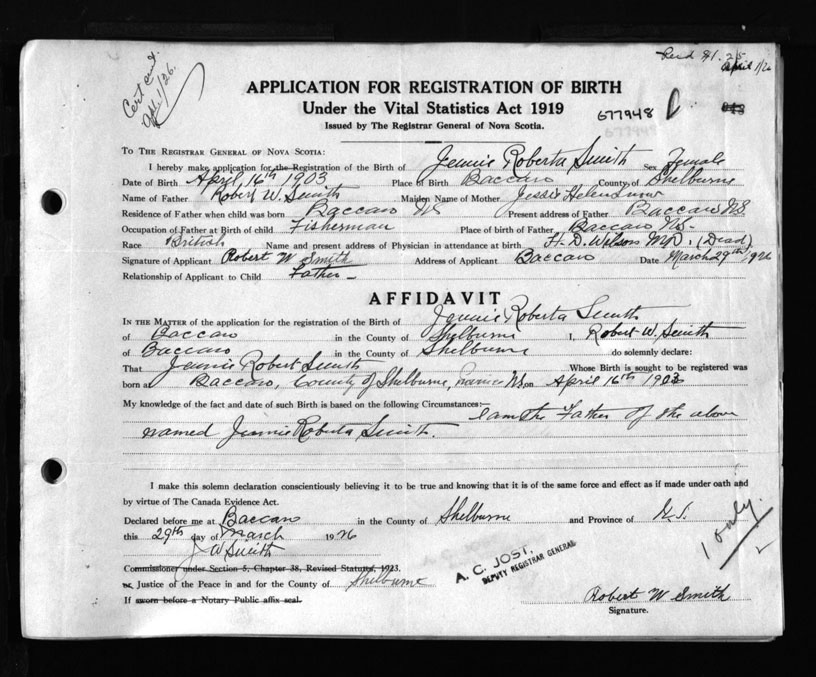 Cert and.
Apl. 1/26.
Recd $1.25
April 1/26
APPLICATION FOR REGISTRATION OF BIRTH
Under the Vital Statistics Act 1919
Issued by The Registrar General of Nova Scotia.
677948
677948
943
To The Registrar General of Nova Scotia:
I hereby make application for the Registration of the Birth of Jennie Roberta Smith Sex Female
Date of Birth April 16th 1903 Place of Birth Baccaro County of Shelburne
Name of Father Robert W. Smith Maiden Name of Mother Jessie Helen Snow
Residence of Father when child was born Baccaro NS Present address of Father Baccaro NS.
Occupation of Father at Birth of child Fisherman Place of birth of Father Baccaro NS.
Race British Name and present address of Physician in attendance at birth H. D. Wilson MD. (Dead)
Signature of Applicant Robert W Smith Address of Applicant Baccaro Date March 29th/1926
Relationship of Applicant to Child Father
AFFIDAVIT
In the Matter of the application for the registration of the Birth of Jennie Roberta Smith
of Baccaro in the County of Shelburne I, Robert W. Smith
of Baccaro in the County of Shelburne do solemnly declare:
That Jennie Robert Smith Whose Birth is sought to be registered was
born at Baccaro, County of Shelburne, NS, on April 16th 1903
My knowledge of the fact and date of such Birth is based on the following Circumstances:— I am the Father of the above
named Jennie Roberta Smith.
I make this solemn declaration conscientiously believing it to be true and knowing that it is of the same force and effect as if made under oath and
by virtue of The Canada Evidence Act.
Declared before me at Baccaro in the County of Shelburne and Province of N.S.
this 29th day of March 1926
J W Smith
Commissioner under Section 5, Chapter 38, Revised Statutes, 1923.
or Justice of the Peace in and for the County of Shelburne
If sworn before a Notary Public affix seal.
A. C. JOST,
DEPUTY REGISTRAR GENERAL
1 only.
Robert W Smith
Signature.